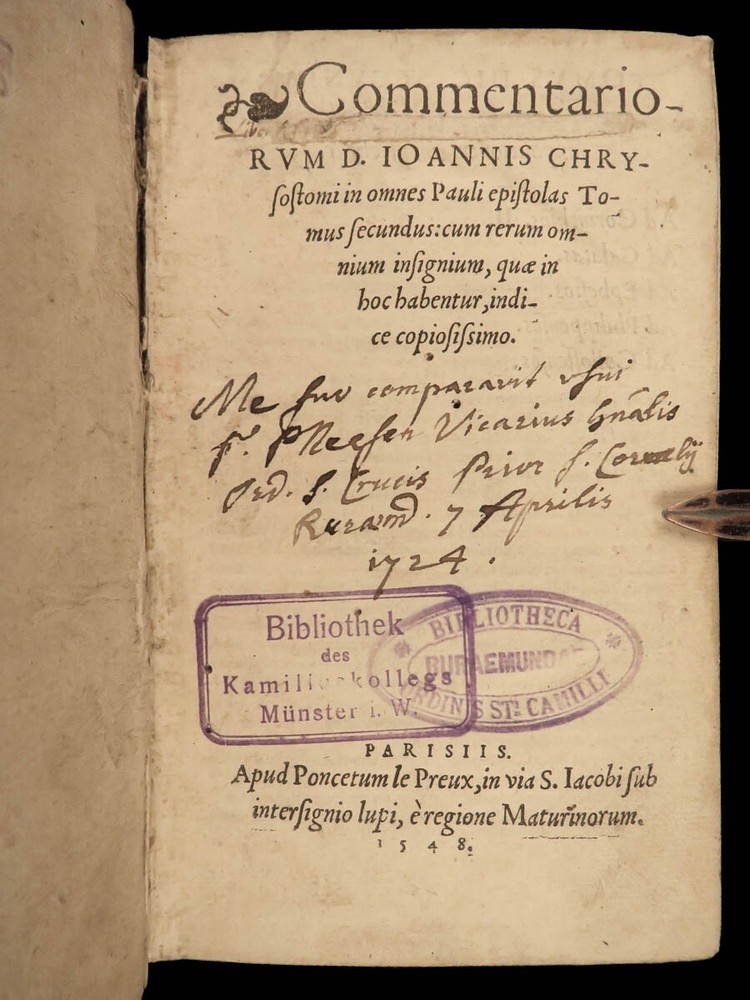 Commentario-
RVM D. IOANNIS CHRY-
ſoſtomi in omnes Pauli epiſtolas To-
mus ſecundus: cum rerum om-
nium inſignium, quæ in
hoc habentur, indi-
ce copioſiſsimo.
Me suo comparavit usui
fr. Vicarius Gnãlis
Ord. S. Crucis Prior S. Cornelij
Ruræmd. 7 Aprilis
1724.
Bibliothek
des
Kamilluskollegs
Münster i. W.
BIBLIOTHECA
RURAEMUNDAE
ORDINIS STI CAMILLI
PARISIIS.
Apud Poncetum le Preux, in via S. Iacobi ſub
interſignio lupi, è regione Maturinorum.
1548.